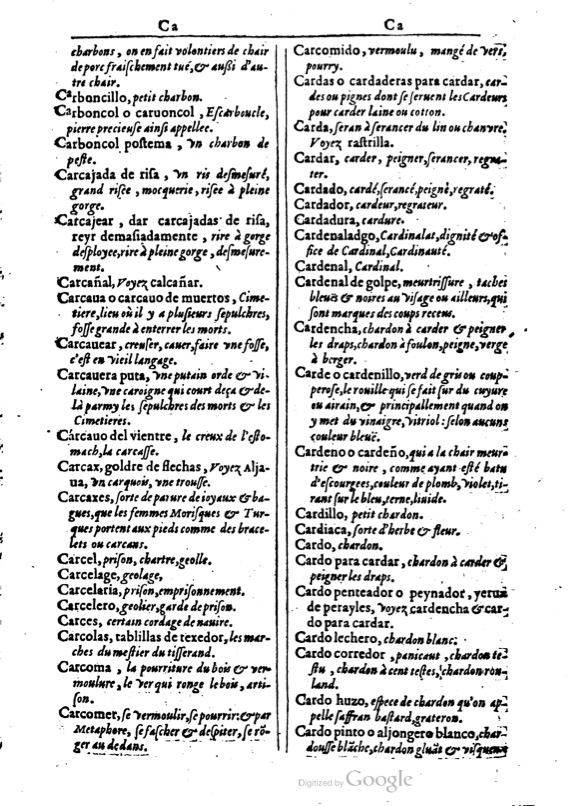 Ca
Ca
charbons, on en fait volontiers de chair
de porc fraiſchement tué, & außi d'au-
tre chair.
Carboncillo, petit charbon.
Carboncol o caruoncol, Eſcarboucle,
pierre precieuse ainſi appellee.
Carboncol poſtema, vn charbon de
peſte.
Carcajada de riſa, vn ris deſmeſuré,
grand riſee, mocquerie, riſee à pleine
gorge.
Carcajear, dar carcajadas de riſa,
reyr demaſiadamente, rire à gorge
deſployee, rire à pleine gorge, deſmeſure-
ment.
Carcañal, Voyez calcañar.
Carcaua o carcauo de muertos, Cime-
tiere, lieu où il y a pluſieurs ſepulchres,
foſſe grande à enterrer les morts.
Carcauear, creuſer, cauer, faire vne foſſe,
c'eſt en vieil langage.
Carcauera puta, vne putain orde & vi-
laine, vne caroigne qui court deça & de-
là parmy les ſepulchres des morts & les
Cimetieres.
Carcauo del vientre, le creux de l'eſto-
mach, la carcaſſe.
Carcax, goldre de flechas, Voyez Alja-
ua, vn carquois, vne trouſſe.
Carcaxes, ſorte de parure de ioyaux & ba-
gues, que les femmes Moriſques & Tur-
ques portent aux pieds comme des brace-
lets ou carcans.
Carcel, priſon, chartre, geolle.
Carcelage, geolage,
Carcelaria, priſon, empriſonnement.
Carcelero, geolier, garde de priſon.
Carces, certain cordage de nauire.
Carcolas, tablillas de texedor, les mar-
ches du meſtier du tiſſerand.
Carcoma, la pourriture du bois & ver-
moulure, le ver qui ronge le bois, arti-
ſon.
Carcomer, ſe vermoulir, ſe pourrir: & par
Metaphore, ſe faſcher & deſpiter, ſe rō-
ger au dedans.
Carcomido, vermoulu, mangé de vers,
pourry.
Cardas o cardaderas para cardar, car-
des ou pignes dont ſe ſeruent les Cardeurs
pour carder laine ou cotton.
Carda, ſeran à ſerancer du lin ou chanvre,
Voyez raſtrilla.
Cardar, carder, peigner, ſerancer, regra-
ter.
Cardado, cardé, ſerancé, peigné, regraté.
Cardador, cardeur, regrateur.
Cardadura, cardure.
Cardenaladgo, Cardinalat, dignité & of-
fice de Cardinal, Cardinauté.
Cardenal, Cardinal.
Cardenal de golpe, meurtriſſure, taches
bleuës & noires au viſage ou ailleurs, qui
ſont marques des coups receus.
Cardencha, chardon à carder & peigner
les draps, chardon à foulon, peigne, verge
à berger.
Carde o cardenillo, verd de gris ou coup-
peroſe, le rouille qui ſe fait ſur du cuyure
ou airain, & principallement quand on
y met du vinaigre, vitriol: ſelon aucuns
couleur bleuë.
Cardeno o cardeño, qui a la chair meur-
trie & noire, comme ayant eſté batu
d'eſcourgees, couleur de plomb, violet, ti-
rant ſur le bleu, terne, liuide.
Cardillo, petit chardon.
Cardiaca, ſorte d'herbe & fleur.
Cardo, chardon.
Cardo para cardar, chardon à carder &
peigner les draps.
Cardo penteador o peynador, yerua
de perayles, Voyez cardencha & car-
do para cardar.
Cardo lechero, chardon blanc.
Cardo corredor, panicaut, chardon te-
ſtu, chardon à cent teſtes, chardon rou-
land.
Cardo huzo, eſpece de chardon qu'on ap-
pelle ſaffran baſtard, grateron.
Cardo pinto o aljongero blanco, char-
douſſe blāche, chardon gluāt & viſqueux
Digitized by Google